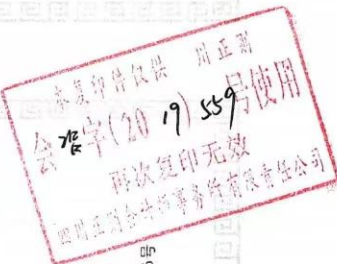 本复印件仅供 川正则
会审字(20 19) 559号使用
再次复印无效
四川正则会计师事务所有限责任公司